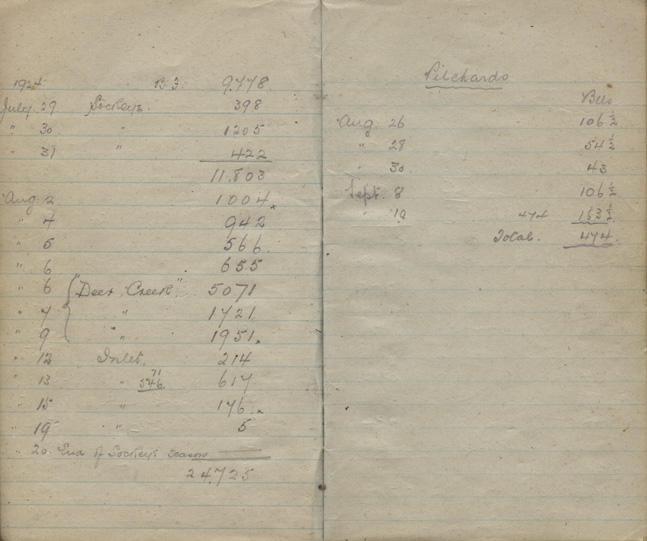 1924 B3 9,778
July 29 Sockeye. 398
" 30 " 1205
" 31 " 422
11,803
Aug 2 1004
" 4 942
" 5 566
" 6 655
" 6 "Deer Creek" 5071
" 7 " 1721
" 9 " 1951
" 12 Inlet. 214
" 13 " 546 71 617
" 15 " 176
" 19 " 5
" 20 End of Sockeye season
24,725
Pilchards
Bls
Aug 26 106 ½
" 28 54 ½
" 30 43
Sept. 8 106 ½
" 19 474 163 ½
Total. 474.